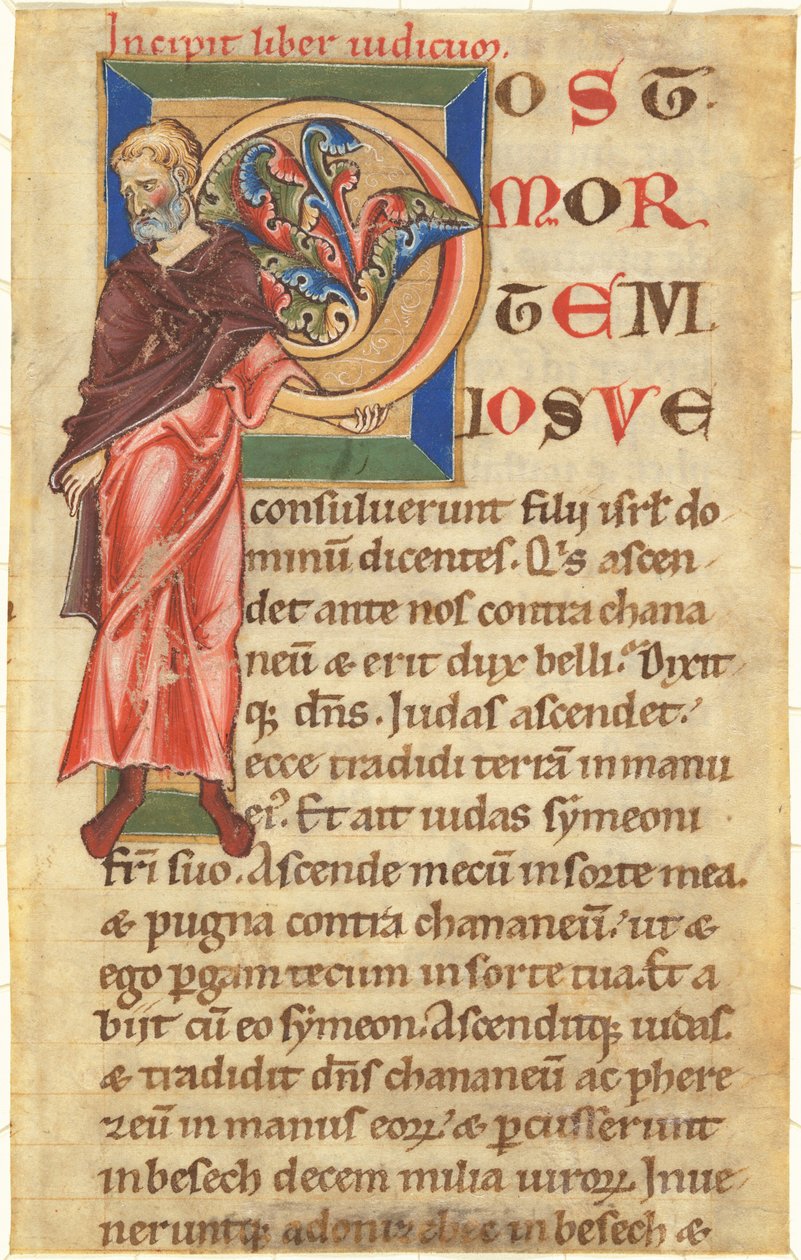 Incipit liber iudicum.
POST
MOR
TEM
IOSVE
consuluerunt filij isrł do
minū dicentes. Qis ascen
det ante nos contra chana
neū & erit dux belli. Dixit
q; dn̄s. Iudas ascendet.
ecce tradidi terrā in manu
ei᷒. Et ait iudas sẏmeoni
fr̄i suo. Ascende mecū in sorte mea.
& pugna contra chananeū. ut &
ego ꝑgam tecum in sorte tua. Et a
biit cū eo sẏmeon. Ascenditq; iudas.
& tradidit dn̄s chananeū ac phere
zeū in manus eoꝝ. & ꝑcusserunt
in besech decem milia uiroꝝ. Inue
neruntq; adonibezec in besech &